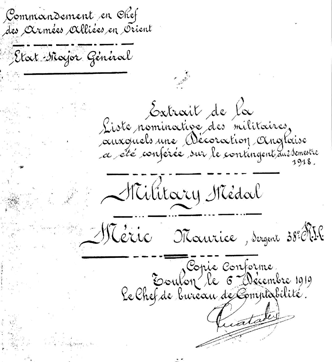 Commandement en Chef
des Armées Alliées en Orient
Etat-Major Général
Extrait de la
Liste nominative des militaires
auxquels une Décoration Anglaise
a été conférée sur le contingent du 2e Semestre
1918.
Military Médal
Méric Maurice, Sergent 35e
Copie Conforme
Toulon le 6 Décembre 1919
Le Chef de bureau de Comptabilité.